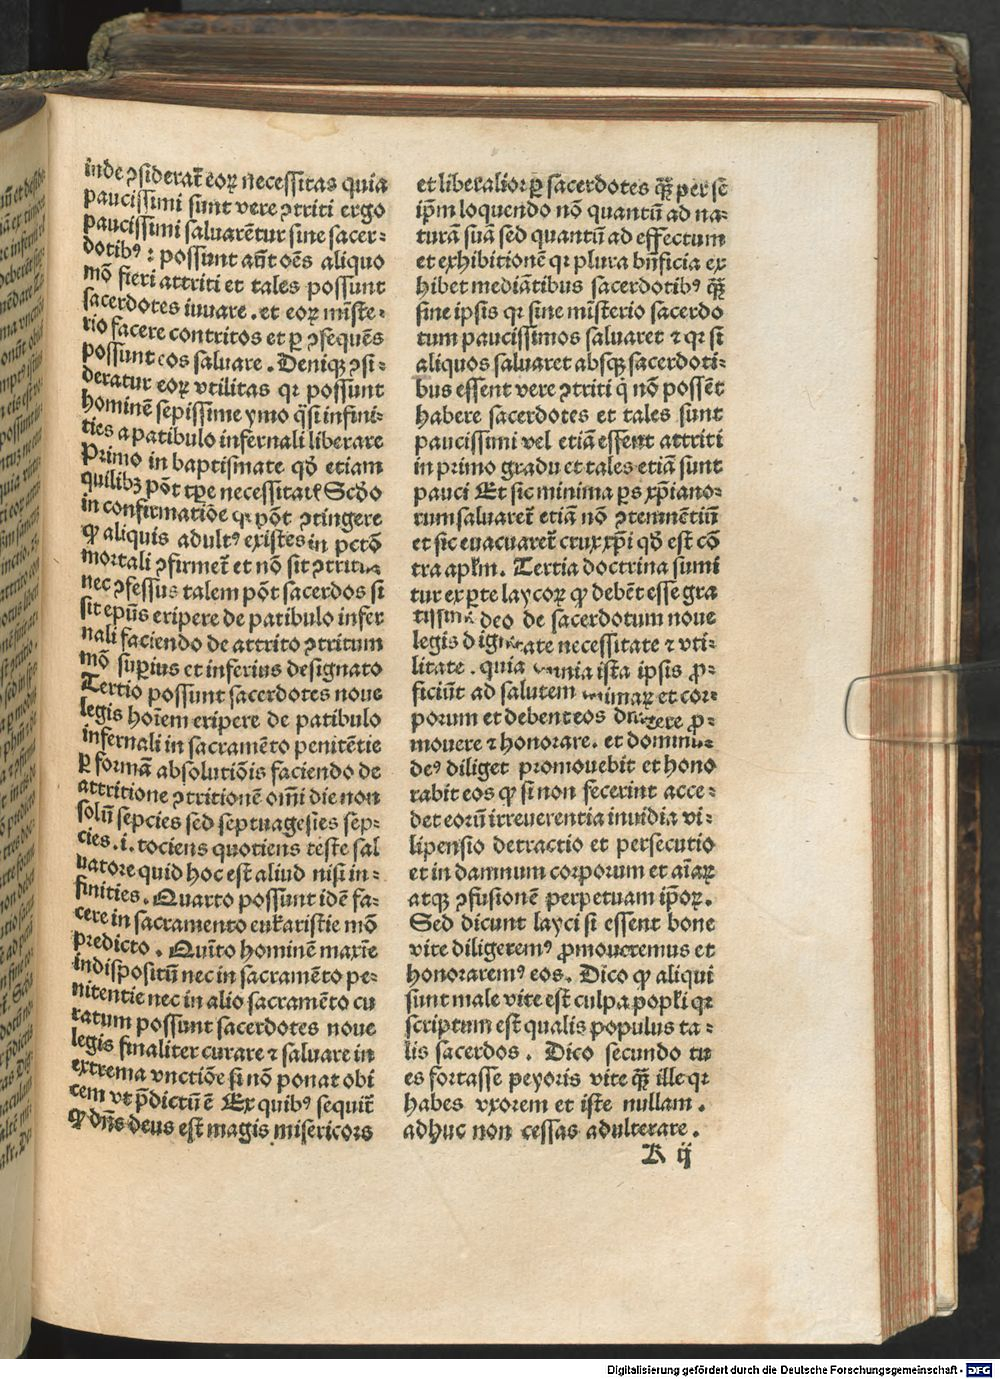 inde ꝯsiderat᷑ eoꝝ necessitas quia
paucissimi sunt vere ꝯtriti ergo
paucissimi saluarẽtur sine sacer⸗
dotibꝰ : possunt aũt oẽs aliquo
mõ fieri attriti et tales possunt
sacerdotes iuuare . et eoꝝ mĩste⸗
rio facere contritos et ꝑ ꝯsequẽs
possunt eos saluare . Deniqꝫ ꝯsi⸗
deratur eoꝝ vtilitas qꝛ possunt
hominẽ sepissime ymo q̃si infini⸗
ties a patibulo infernali liberare
Primo in baptismate qđ etiam
quilibꝫ põt tꝑe necessitatꝭ Scđo
in confirmatiõe qꝛ põt ꝯtingere
ꝙ aliquis adultꝰ existẽs in pctõ
mortali ꝯfirmet᷑ et nõ sit ꝯtritus
nec ꝯfessus talem põt sacerdos si
sit epũs eripere de patibulo infer
nali faciendo de attrito ꝯtritum
mõ suꝑius et inferius designato
Tertio possunt sacerdotes noue
legis hoĩem eripere de patibulo
infernali in sacramẽto penitẽtie
ꝑ formã absolutiõis faciendo de
attritione ꝯtritionẽ omĩ die non
solũ sepcies sed septuagesies sep⸗
cies .i. tociens quotiens teste sal
uatore quid hoc est aliud nisi in⸗
finities . Quarto possunt idẽ fa⸗
cere in sacramento eukaristie mõ
predicto . Quĩto hominẽ maxĩe
indispositũ nec in sacramẽto pe⸗
nitentie nec in alio sacramẽto cu
ratum possunt sacerdotes noue
legis finaliter curare ⁊ saluare in
extrema vnctiõe si nõ ponat obi
cem vt p̃dictũ ẽ Ex quibꝰ sequit᷑
ꝙ dñs deus est magis misericors
et liberalior ꝑ sacerdotes qꝫ̃ per se
ip̃m loquendo nõ quantũ ad na⸗
turã suã sed quantũ ad effectum
et exhibitionẽ qꝛ plura bñficia ex
hibet mediãtibus sacerdotibꝰ qꝫ̃
sine ipsis qꝛ sine mĩsterio sacerdo
tum paucissimos saluaret ⁊ qꝛ si
aliquos saluaret absqꝫ sacerdoti⸗
bus essent vere ꝯtriti q̇ nõ possẽt
habere sacerdotes et tales sunt
paucissimi vel etiã essent attriti
in primo gradu et tales etiã sunt
pauci Et sic minima ꝑs xp̃iano⸗
rum saluaret᷑ etiã nõ ꝯtemnẽtiũ
et sic euacuaret᷑ crux xp̃i qđ est cõ
tra apłm . Tertia doctrina sumi
tur ex ꝑte laycoꝝ ꝙ debẽt esse gra
tissimi deo de sacerdotum noue
legis dignitate necessitate ⁊ vti⸗
litate . quia omnia ista ipsis ꝓ⸗
ficiũt ad salutem animaꝝ et cor⸗
porum et debent eos diligere ꝓ⸗
mouere ⁊ honorare. et dominus
deꝰ diliget promouebit et hono
rabit eos ꝙ si non fecerint acce⸗
det eorũ irreuerentia inuidia vi⸗
lipensio detractio et persecutio
et in damnum corporum et aĩaꝝ
atqꝫ ꝯfusionẽ perpetuam ip̃oꝝ.
Sed dicunt layci si essent bone
vite diligeremꝰ ꝓmoueremus et
honoraremꝰ eos. Dico ꝙ aliqui
sunt male vite est culpa popłi qꝛ
scriptum est qualis populus ta⸗
lis sacerdos . Dico secundo tu
es fortasse peyoris vite qꝫ̃ ille qꝛ
habes vxorem et iste nullam .
adhuc non cessas adulterare .
K ij
Digitalisierung gefördert durch die Deutsche Forschungsgemeinschaft - DFG